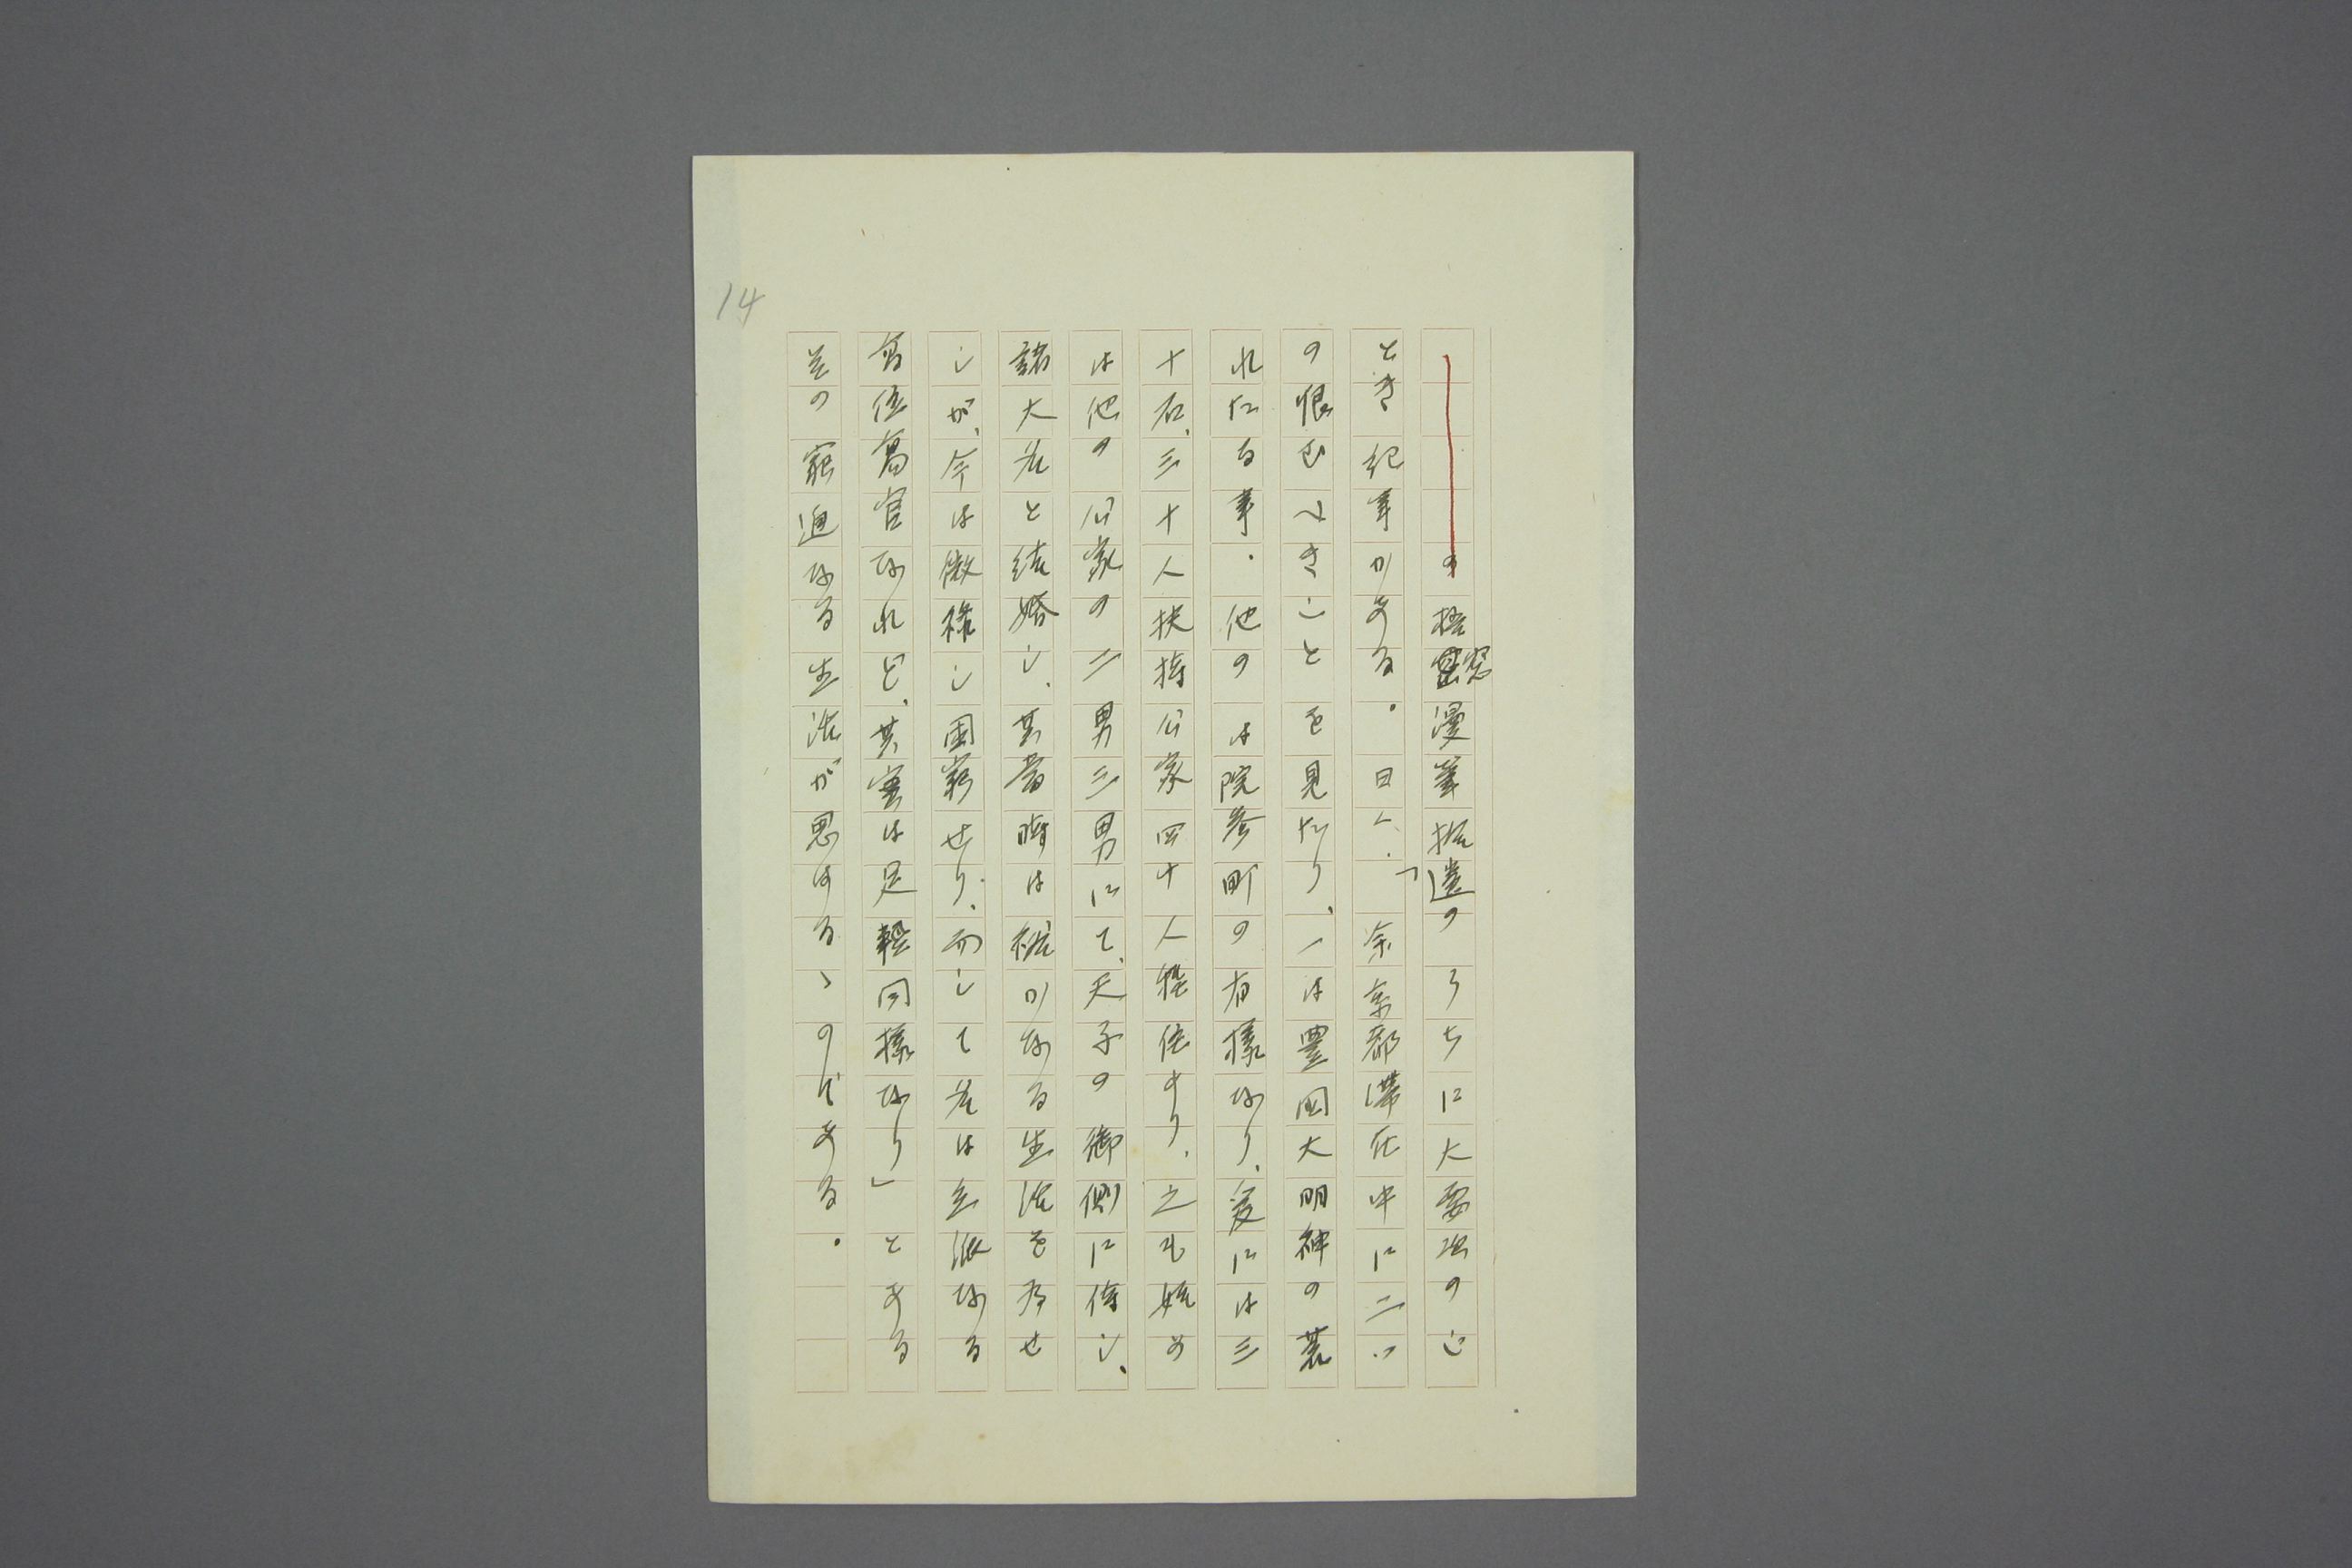 14
の梧窓漫筆拾遺のうちに大要次のご
とき紀事がある。曰く、「余京都滞在中に二つ
の恨むべきことを見たり、一は豊国大明神の荒
れたる事．他のは院参町の有様なり、爰には三
十石、三十人扶持公家四十人程住すり、之も始め
は他の公家の二男三男にて、天子の御側に侍し、
諸大名と結婚し、其当時は裕かなる生活を為せ
しが、今は微祿し困窮せり、而して名は立派なる
高位高官なれど、其実は足軽同様なり」とある
その窮迫なる生活が思はるゝのである。